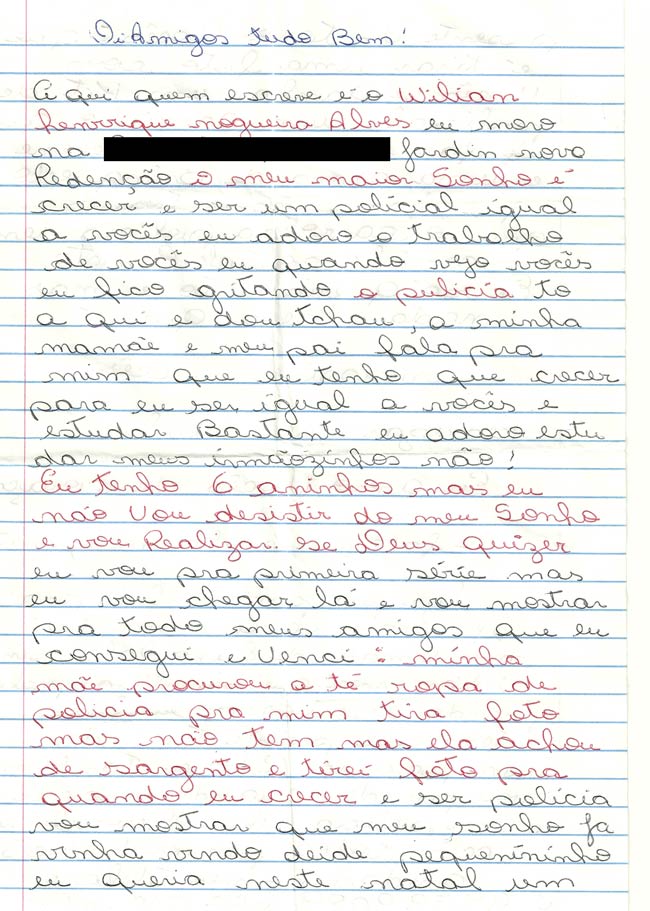 Oi Amigos tudo Bem!
A qui quem escreve é o Wilian
henrrique nogueira Alves eu moro
na Jardin novo
Redenção o meu maior Sonho é
crecer e ser um polícial igual
a vocês eu adoro o trabalho
de vocês eu quando vejo vocês
eu fico gritando o pulícia to
a qui e dou tchau, a minha
mamãe e meu pai fala pra
mim que eu tenho que crecer
para eu ser igual a vocês e
estudar Bastante eu adoro estu
dar meus irmãozinhos não!
Eu tenho 6 aninhos mas eu
não Vou desistir do meu Sonho
e vou Realizar. se Deus quizer
eu vou pra primeira série mas
eu vou chegar lá e vou mostrar
pra todo meus amigos que eu
consegui e Venci : minha
mãe procurou a té ropa de
polícia pra mim tira foto
mas não tem mas ela achou
de sargento e tirei foto pra
quando eu crecer e ser polícia
vou mostrar que meu sonho ja
vinha vindo deide pequenininho
eu queria neste natal um